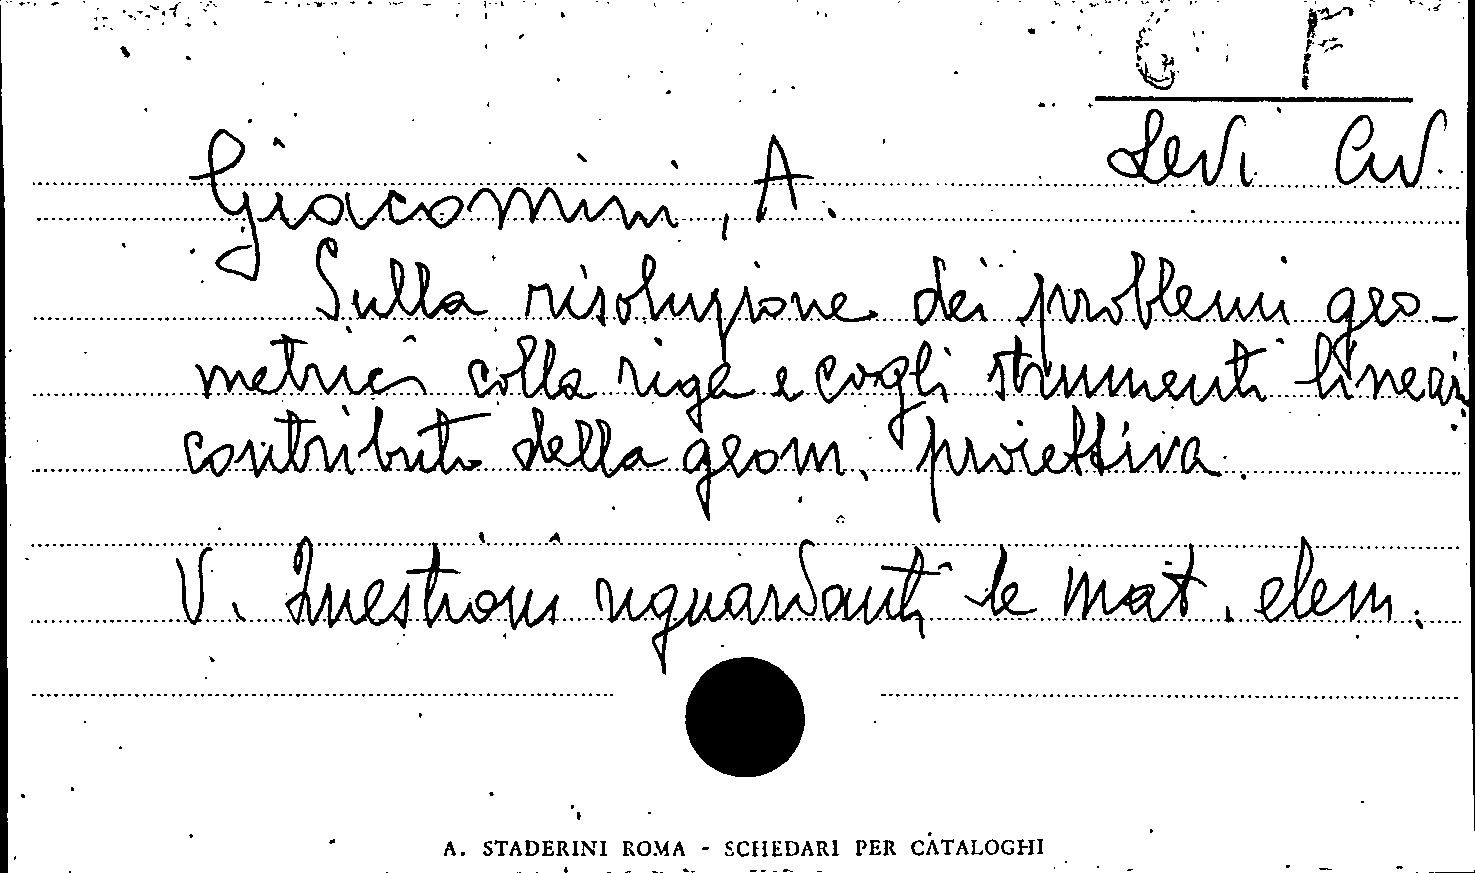 G F
Levi Civ.
Giacomini, A.
Sulla risoluzione dei problemi geo-
metrici colla riga e cogli strumenti lineari:
contributo della geom. proiettiva.
V. Questioni riguardanti le mat. elem.
A. STADERINI ROMA - SCHEDARI PER CATALOGHI